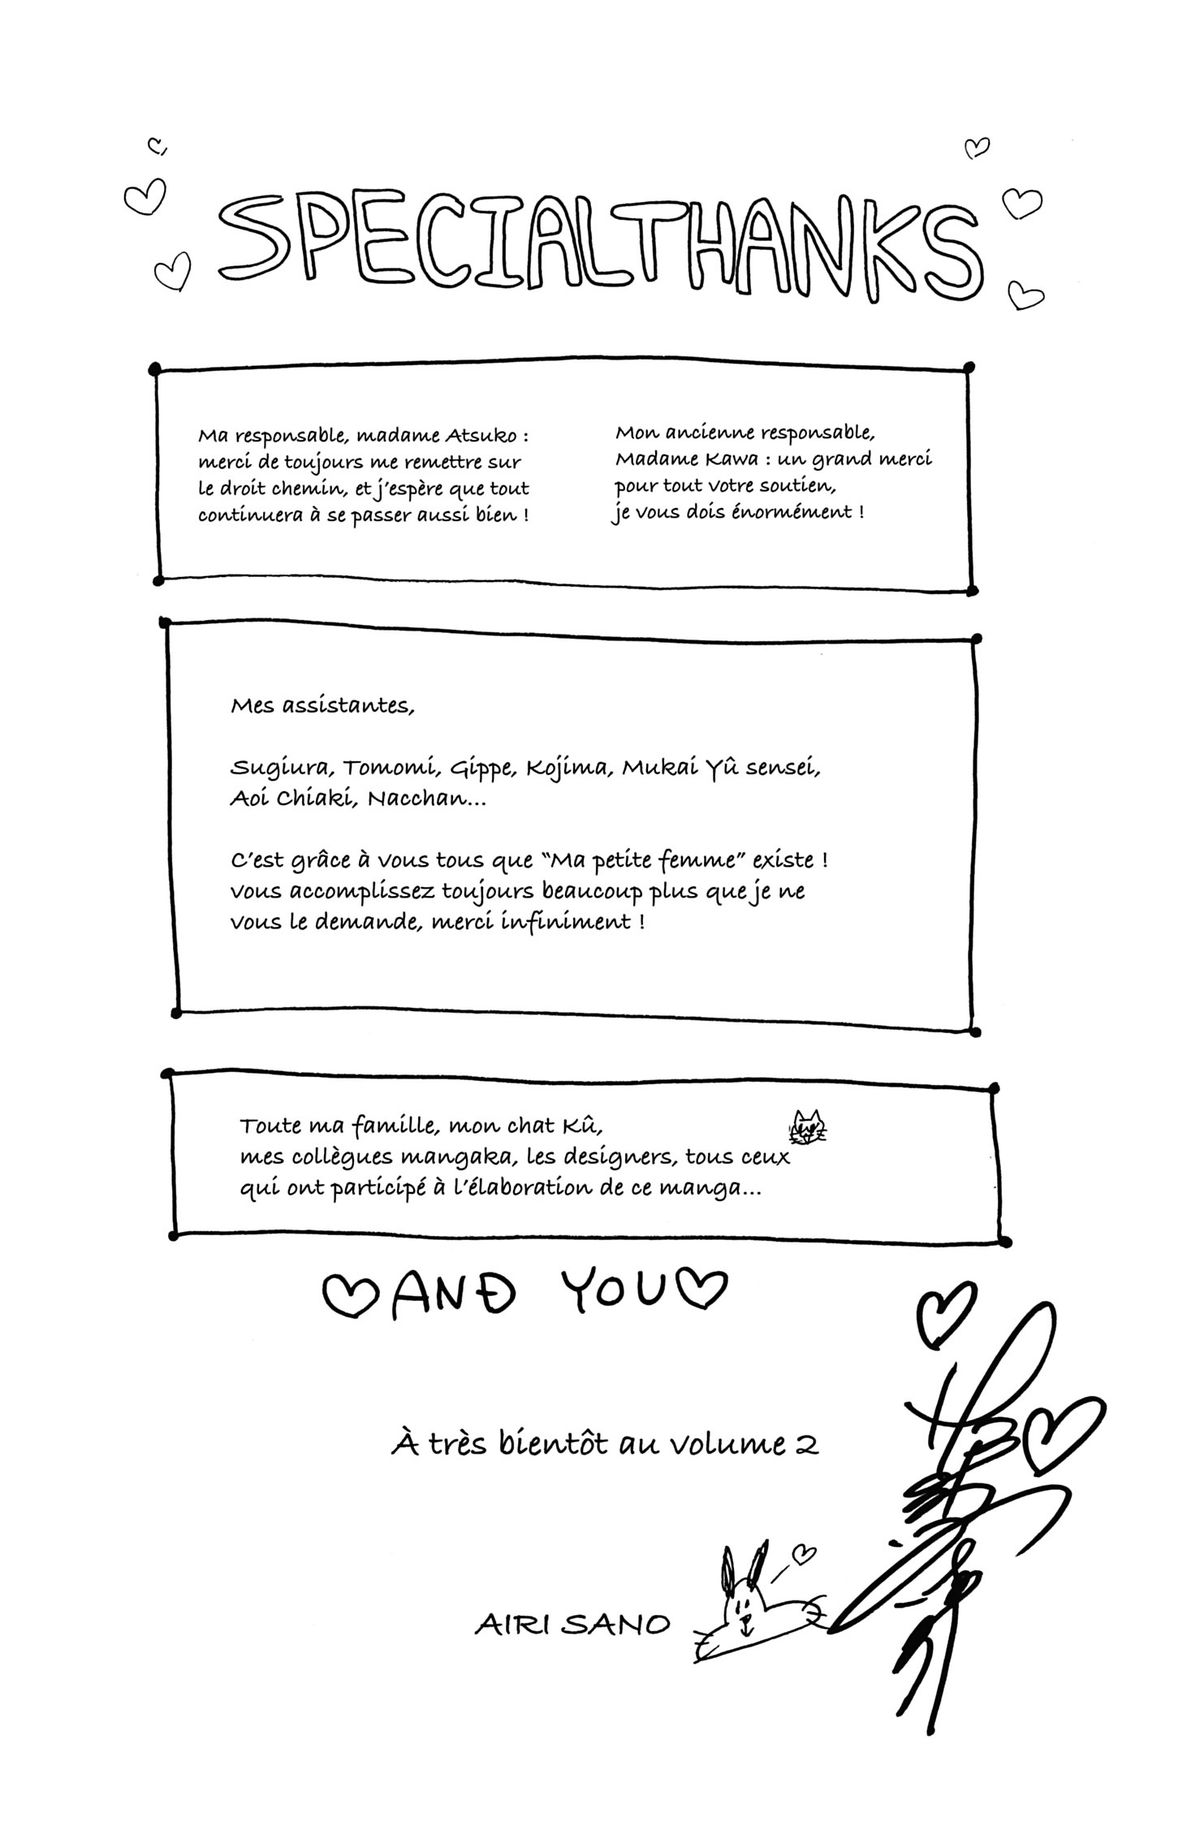 SPECIAL THANKS
Ma responsable, madame Atsuko :
merci de toujours me remettre sur
le droit chemin, et j'espère que tout
continuera à se passer aussi bien !
Mon ancienne responsable,
Madame Kawa : un grand merci
pour tout votre soutien,
je vous dois énormément !
Mes assistantes,
Sugiura, Tomomi, Gippe, Kojima, Mukai Yû sensei,
Aoi Chiaki, Nacchan...
C'est grâce à vous tous que "Ma petite femme" existe !
vous accomplissez toujours beaucoup plus que je ne
vous le demande, merci infiniment !
Toute ma famille, mon chat Kû,
mes collègues mangaka, les designers, tous ceux
qui ont participé à l'élaboration de ce manga...
AND YOU
À très bientôt au volume 2
AIRI SANO